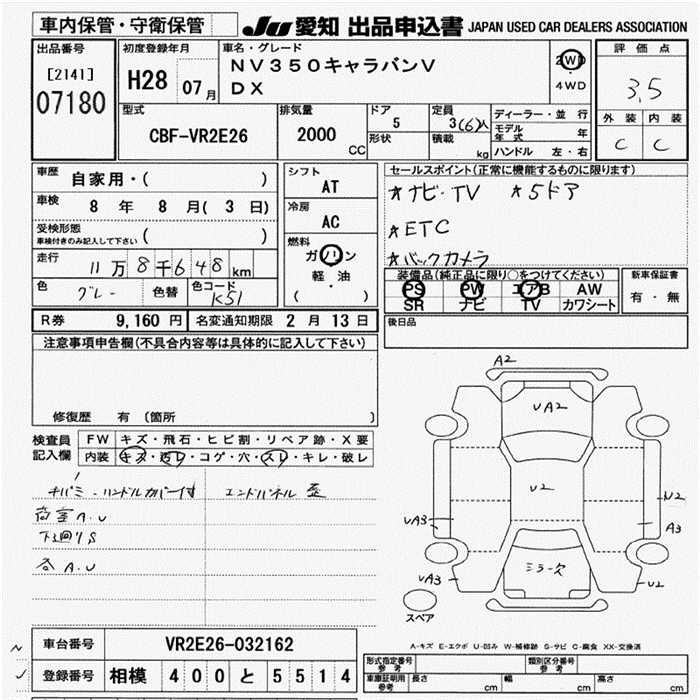 車内保管・守衛保管
JU 愛知 出品申込書 JAPAN USED CAR DEALERS ASSOCIATION
出品番号
[2141]
07180
初度登録年月
H28 07月
車名・グレード
NV350キャラバンV
DX
2WD
4WD
評価点
3.5
外装 内装
C C
型式
CBF-VR2E26
排気量
2000 CC
ドア
5
形状
定員
3(6)人
積載 kg
ディーラー・並行
モデル年式 年
ハンドル 左・右
車歴
自家用・( )
車検
8年 8月( 3日)
受検形態
車検付きのみ記入して下さい ( )
走行
11万8千648km
色
グレー 色替
色コード
K51
シフト
AT
冷房
AC
燃料
ガソリン
軽・油
( )
セールスポイント(正常に機能するものに限ります)
★ナビ・TV ★5ドア
★ETC
★バックカメラ
装備品(純正品に限り○をつけてください)
PS PW エアB AW
SR ナビ TV カワシート
新車保証書
有・無
R券 9,160円 名変通知期限 2月13日
後日品
注意事項申告欄(不具合内容等は具体的に記入して下さい)
修復歴 有 (箇所 )
検査員
記入欄
FW キズ・飛石・ヒビ割・リペア跡・X要
内装 キズ・汚レ・コゲ・穴・スレ・キレ・破レ
キバミ・ハンドルカバー付 エンドパネル歪
荷室A.U
下廻りS
各A.U
A2
UA2
U2
UA3
UA3
U2
A3
U2
ミラー欠
スペア
A-キズ E-エクボ U-凹み W-補修跡 S-サビ C-腐食 XX-交換済
車台番号 VR2E26-032162
登録番号 相模 400 と 5514
形式指定番号
参考
類別区分番号
参考
車庫証明用
参考
長さ cm 幅 cm 高さ cm